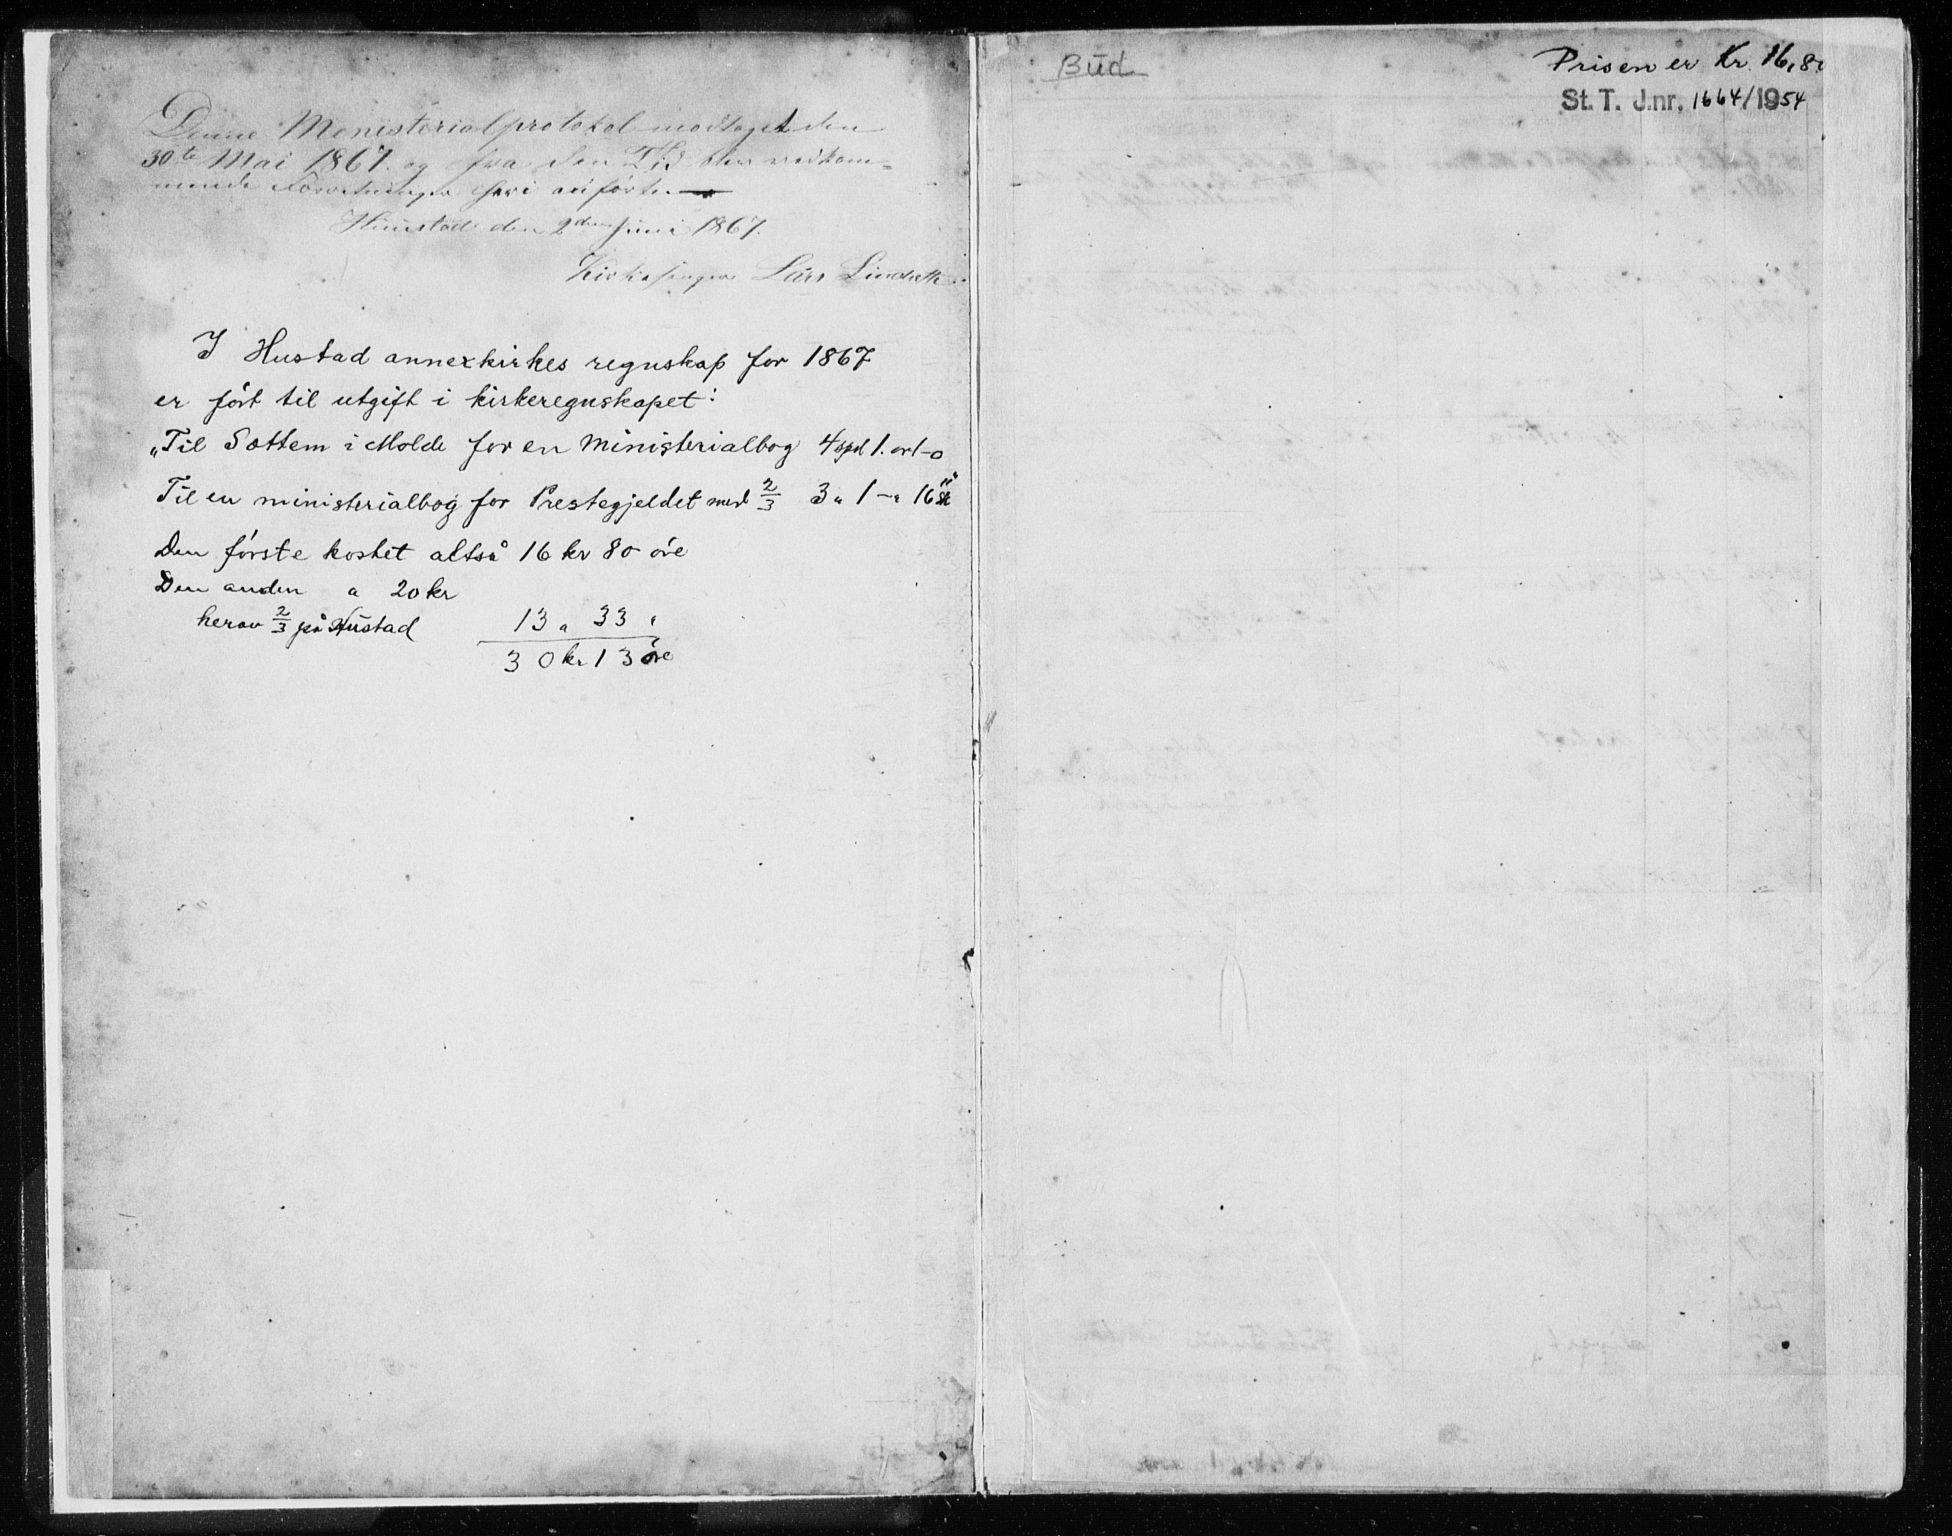 Denne Menisterialprotokol modtaget den
30te Mai 1867. og fra den Tid blev vedkom=
mende Forretninger heri anførte.
Hüustad den 2den Juni 1867.
Kirkesanger Lars
I Hustad annexkirkes regnskap for 1867
er ført til utgift i kirkeregnskapet:
„Til Sættem i Molde for en Ministerialbog 4 spd 1. ort - o
Til en ministerialbog for Prestegjeldet med 2/3 3 „ 1 - „ 16 sk"
Den første kostet altså 16 kr 80 øre
Den anden a 20 kr
herav 2/3 på Hustad 13 „ 33 „
30 kr 13 øre
Büd
Prisen er Kr. 16,80
St. T. J.nr. 1664/1954